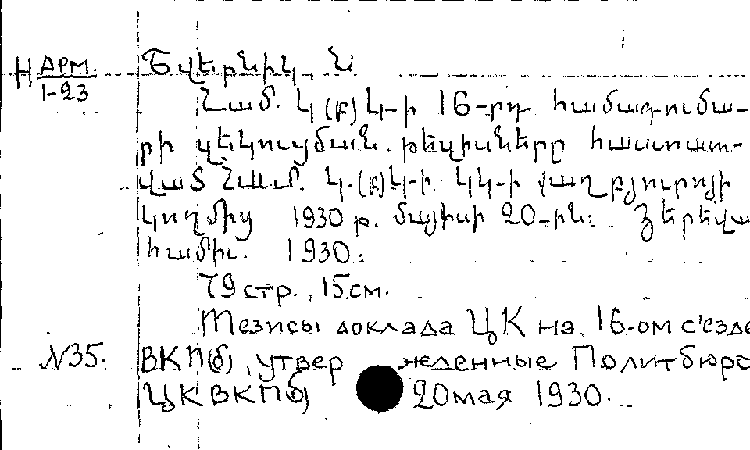 Н АРМ. 1-23
Շվերնիկ, Ն.
Համ. Կ(բ)Կ-ի 16-րդ համագումա-
րի զեկուցման թեզիսները հաստատ-
ված Համ. Կ.(բ)Կ-ի ԿԿ-ի քաղբյուրոյի
կողմից 1930 թ. մայիսի 20-ին: Յերեվա
համիր. 1930:
79 стр., 15 см.
Тезисы доклада ЦК на 16-ом с'езде
№35. ВКП(б), утвержденные Политбюро
ЦК ВКП(б) 20 мая 1930.